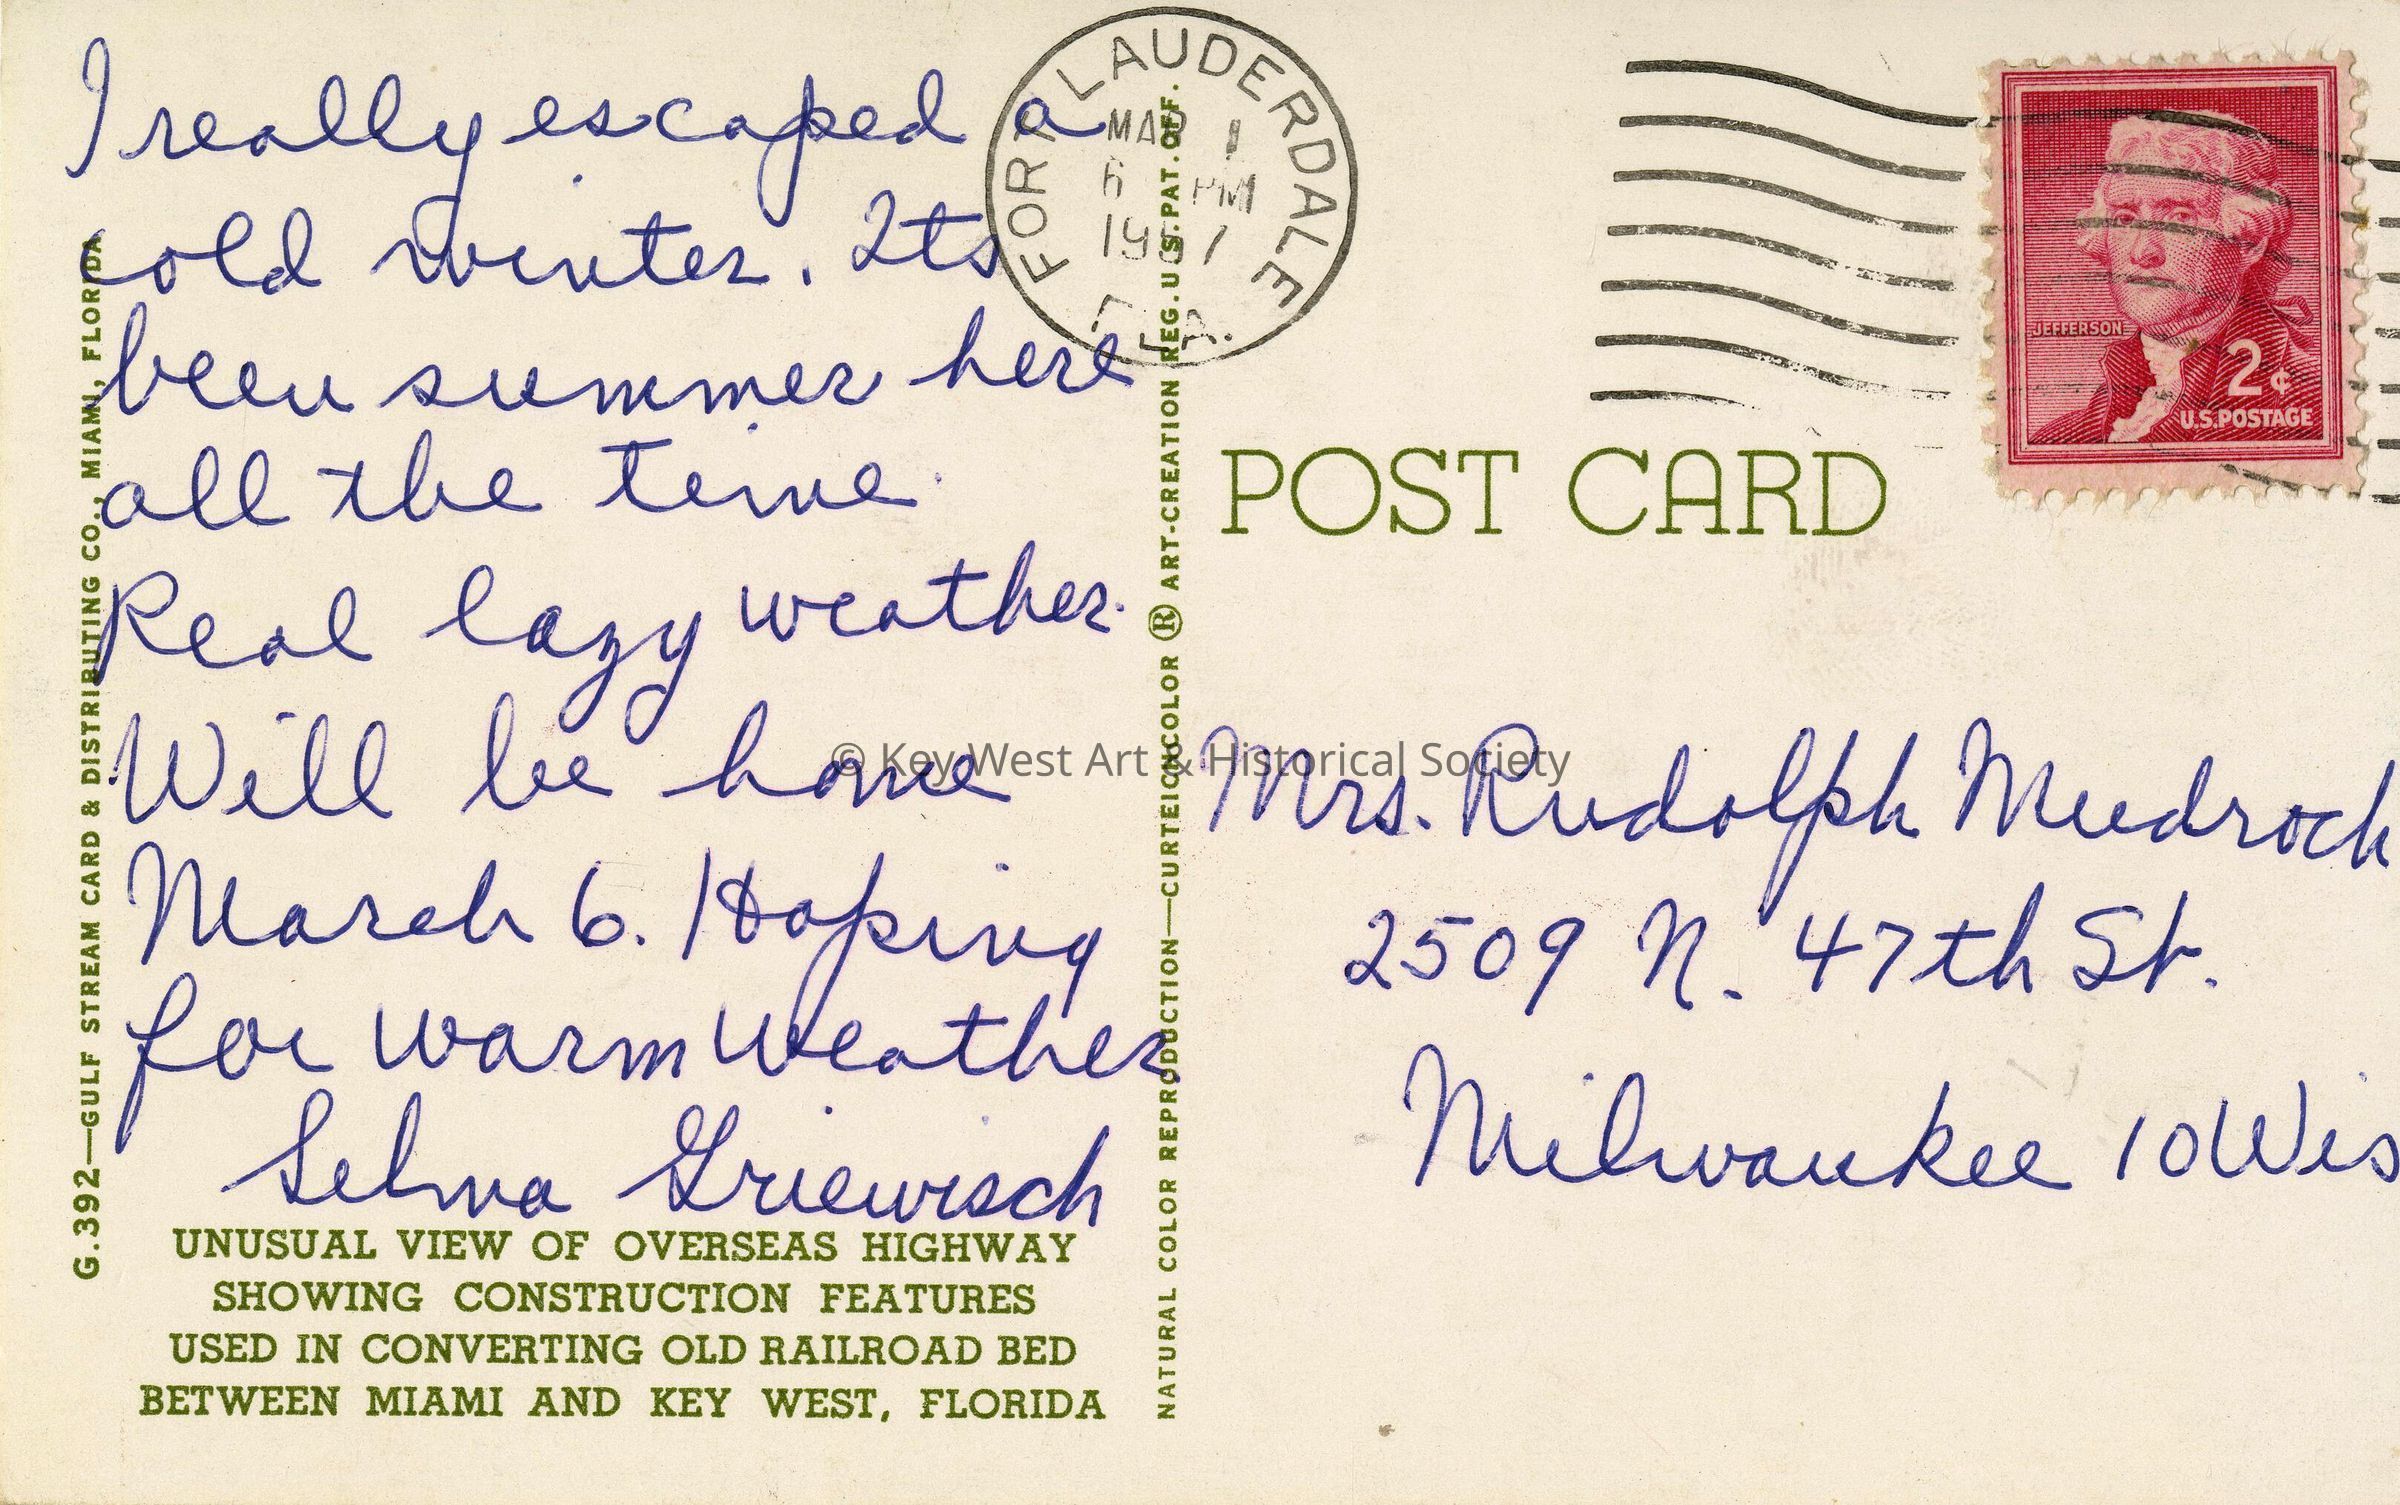 I really escaped a
cold winter. Its
been summer here
all the time.
Real lazy weather.
Will be home
March 6. Hoping
for warm weather.
Selma Griewisch
UNUSUAL VIEW OF OVERSEAS HIGHWAY
SHOWING CONSTRUCTION FEATURES
USED IN CONVERTING OLD RAILROAD BED
BETWEEN MIAMI AND KEY WEST, FLORIDA
G.392—GULF STREAM CARD & DISTRIBUTING CO., MIAMI, FLORIDA
NATURAL COLOR REPRODUCTION—CURTEICHCOLOR ® ART-CREATION REG. U.S. PAT. OFF.
FORT LAUDERDALE
MAR 1
6 PM
FLA.
JEFFERSON
2¢
U.S. POSTAGE
POST CARD
Mrs. Rudolph Mudrock
2509 N. 47th St.
Milwaukee 10 Wis
© Key West Art & Historical Society